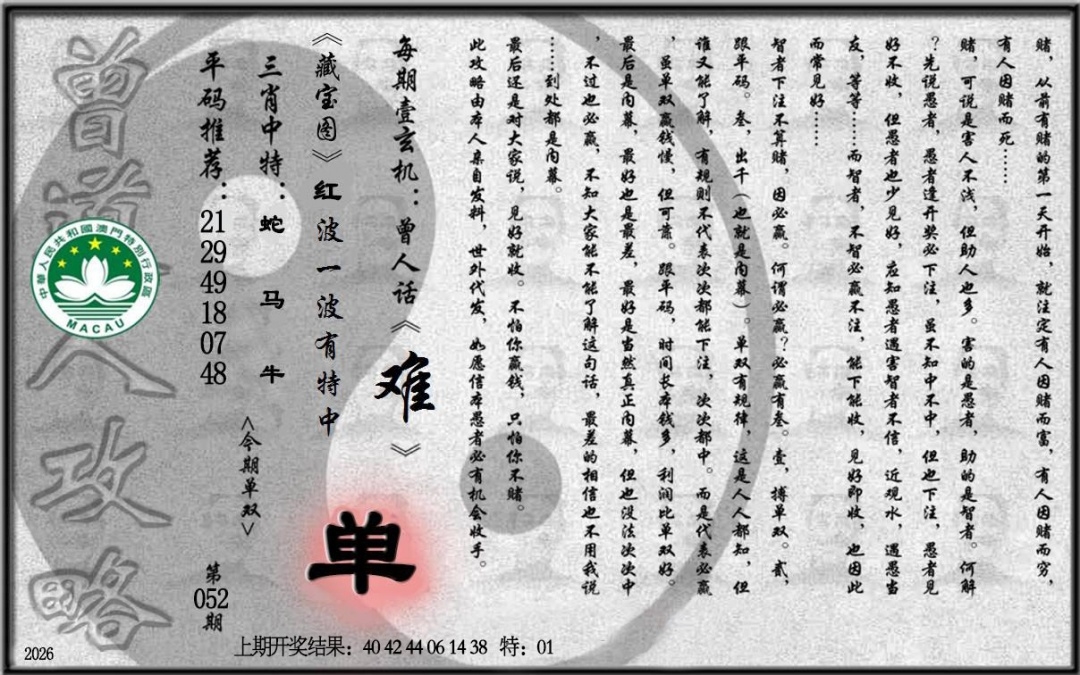 赌，从前有赌的第一天开始，就注定有人因赌而富，有人因赌而穷，
有人因赌而死……
赌，可说是害人不浅，但助人也多。害的是愚者，助的是智者。何解
？先说愚者，愚者逢开奖必下注，虽不知中不中，但也下注，愚者见
好不收，但愚者也少见好，应知愚者遇害智者不信，近观水，遇愚当
友，等等……而智者，不智必赢不注，能下能收，见好即收，也因此
而常见好……
智者下注不算赌，因必赢。何谓必赢？必赢有叁。壹，搏单双。贰，
跟平码。叁，出千（也就是内幕）。单双有规律，这是人人都知，但
谁又能了解，有规则不代表次次都能下注，次次都中。而是代表必赢
，虽单双赢钱慢，但可靠。跟平码，时间长本钱多，利润比单双好。
最后是内幕，最好也是最差，最好是当然真正内幕，但也没法次次中
，不过也必赢，不知大家能不能了解这句话，最差的相信也不用我说
……到处都是内幕。
最后还是对大家说，见好就收。不怕你赢钱，只怕你不赌。
此攻略由本人亲自发料，世外代发，如愿信本愚者必有机会收手。
每期壹玄机：曾人话《难》
《藏宝图》红波一波有特中
单
三肖中特：蛇 马 牛
<今期单双>
平码推荐：21 29 49 18 07 48
第052期
曾道人攻略
中華人民共和國澳門特別行政區
MACAU
上期开奖结果：40 42 44 06 14 38 特：01
2026